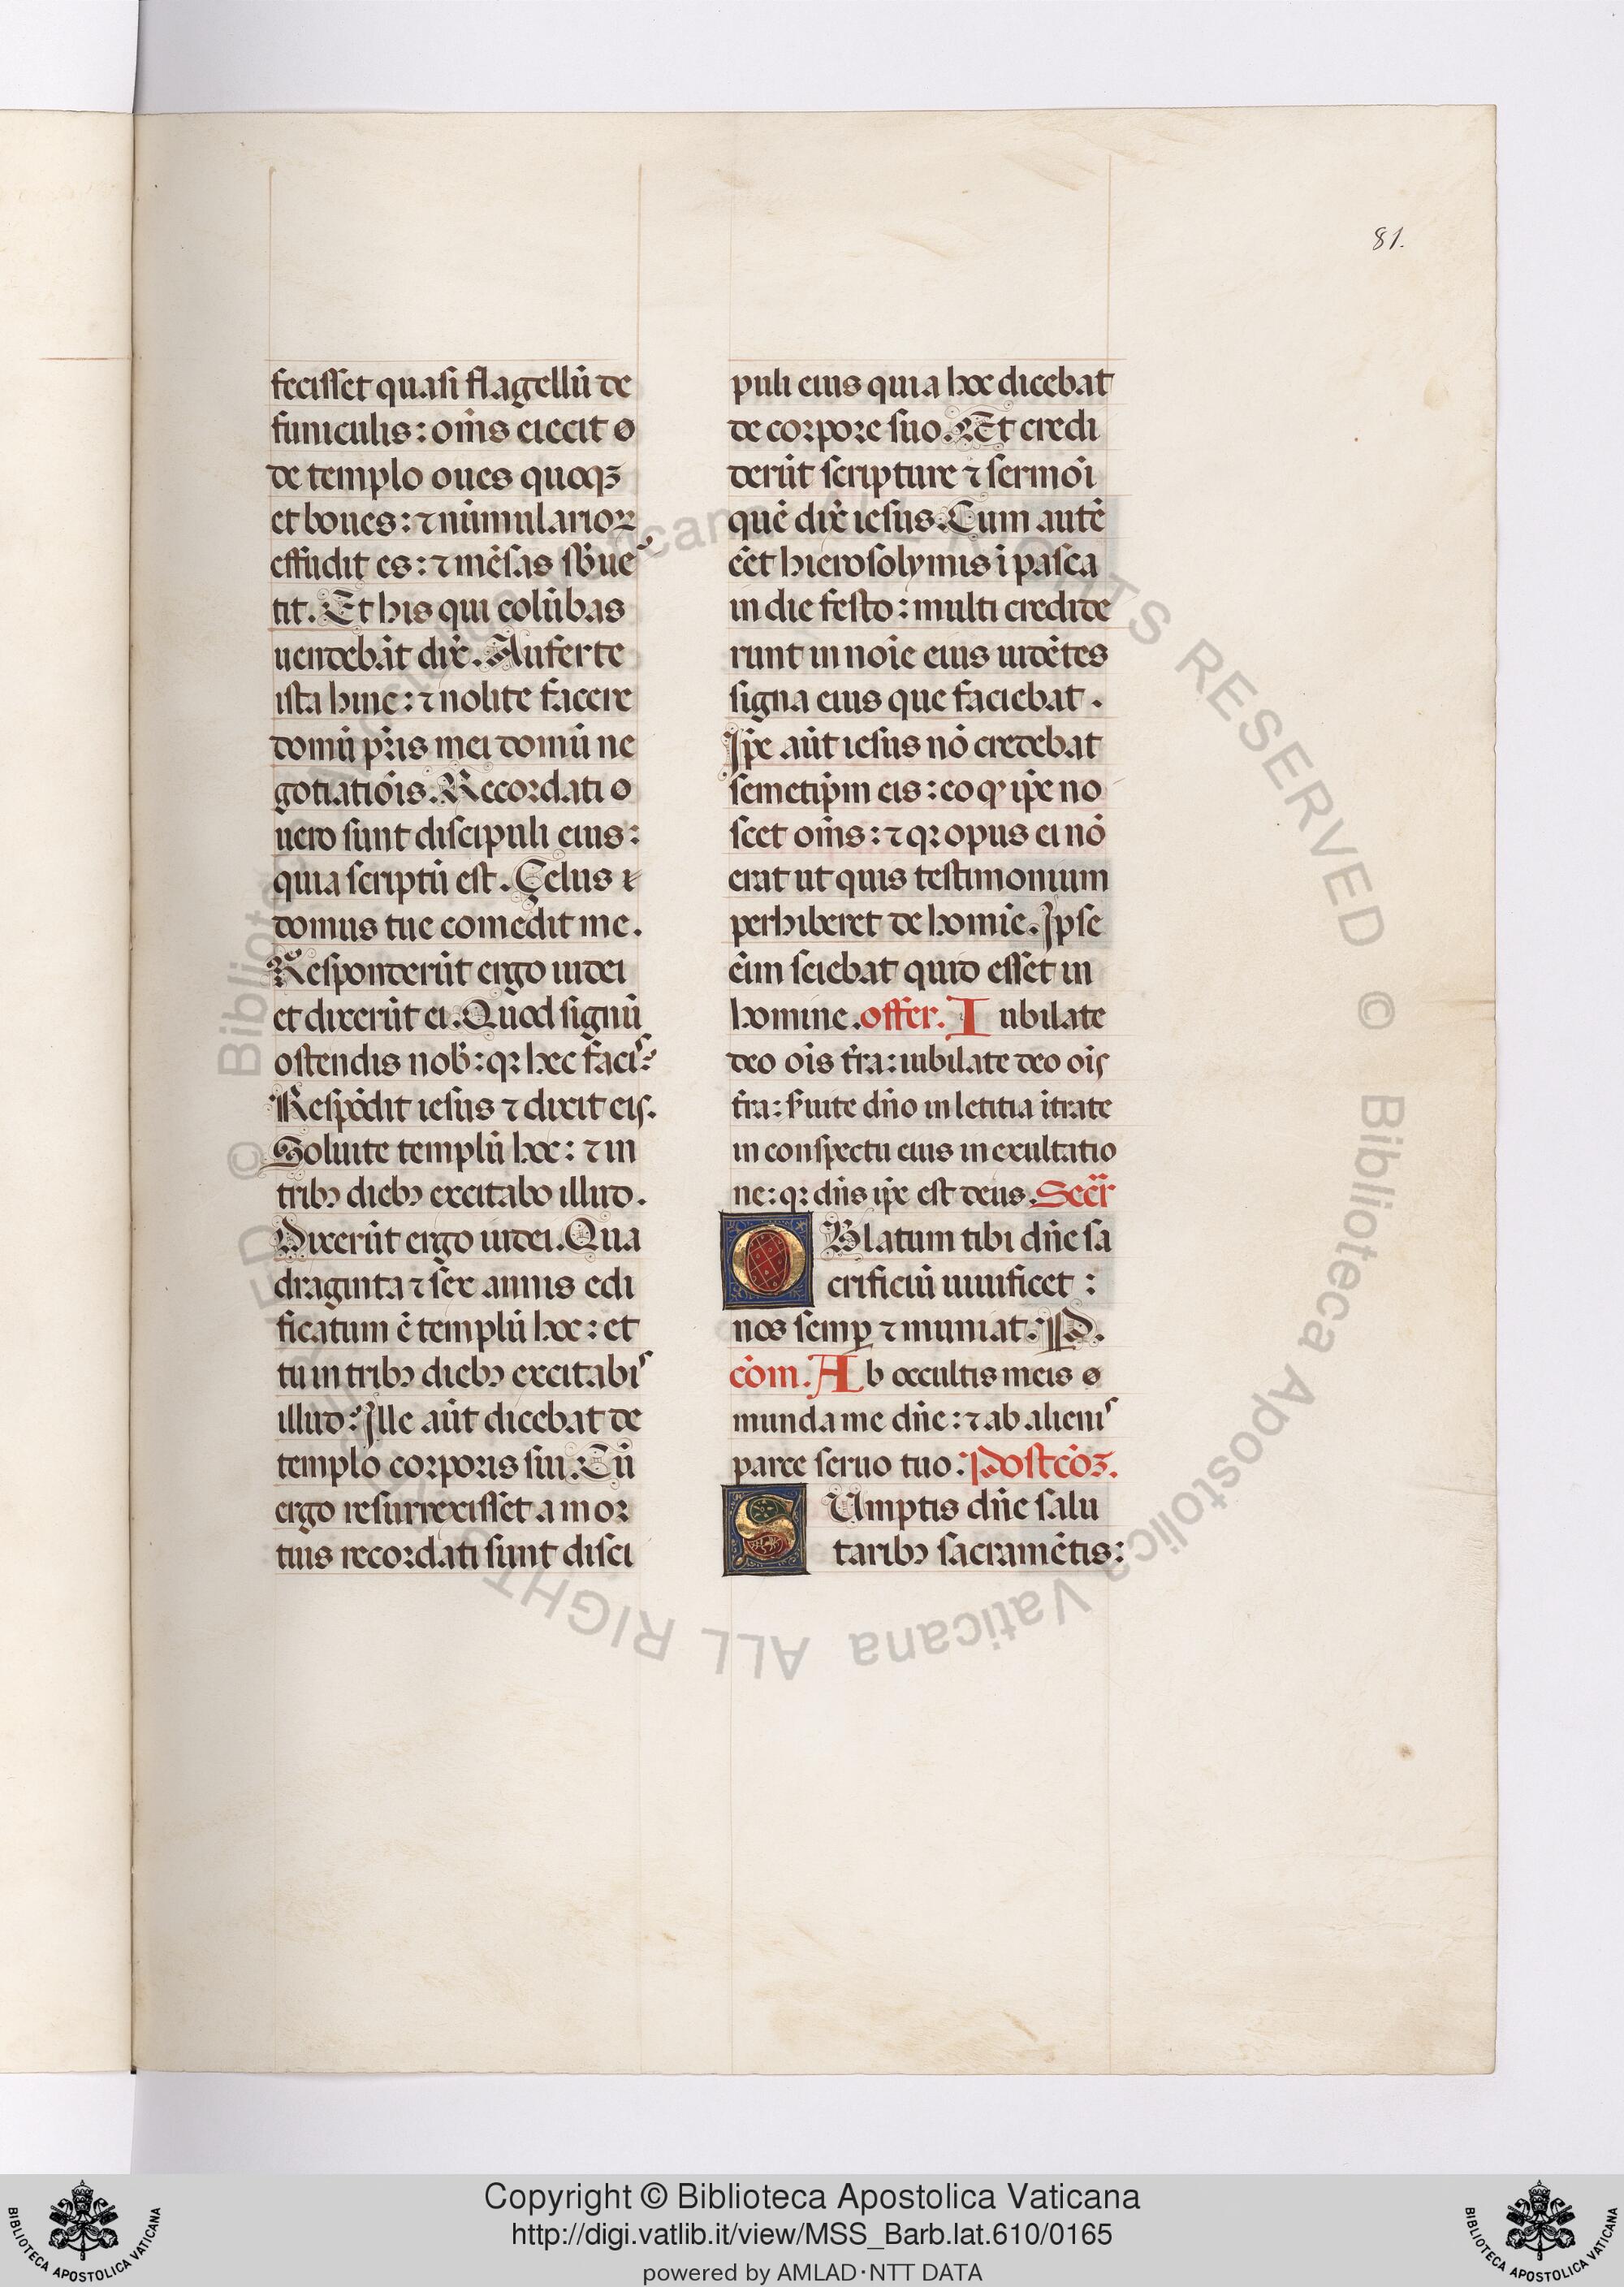 81.
fecisset quasi flagellū de
funiculis: om̄s eiecit ꝋ
de templo oues quoqꝫ
et boues: ⁊ nūmularioꝝ
effudit es: ⁊ mēsas sb̄ue
tit. Et his qui colūbas
uendebāt dix̄. Auferte
ista hinc: ⁊ nolite facere
domū pr̄is mei domū ne
gotiatiōis. Recordati o
uero sunt discipuli eius:
quia scriptū est. Celus
domus tue comedit me.
Responderūt ergo iudei
et dixerūt ei. Quod signū
ostendis nob̄: qꝛ hec facis
Respōdit iesus ⁊ dixit eis.
Soluite templū hoc: ⁊ in
tribꝫ diebꝫ excitabo illud.
Dixerūt ergo iudei. Qua
draginta ⁊ sex annis edi
ficatum ē templū hoc: et
tu in tribꝫ diebꝫ excitabis
illud: Ille aūt dicebat de
templo corporis sui. Cū
ergo resurrexisset a mor
tuis recordati sunt disci
puli eius quia hoc dicebat
de corpore suo. Et credi
derūt scripture ⁊ sermōi
quē dix̄ iesus. Cum autē
eēt hierosolymis ī pasca
in die festo: multi credide
runt in noīe eius uidētes
signa eius que faciebat.
Ip̄e aūt iesus nō credebat
semetip̄m eis: eo qꝰ ip̄e no
scet om̄s: ⁊ qꝛ opus ei nō
erat ut quis testimonium
perhiberet de homīe. Ipse
eīm sciebat quid esset in
homine. offer. Iubilate
deo oīs t̄ra: iubilate deo oīs
t̄ra: s̄uite dn̄o in letitia ītrate
in conspectu eius in exultatio
ne: qꝛ dn̄s ip̄e est deus. Secr̄
OBlatum tibi dn̄e sa
crificiū uiuificet:
nos semꝑ ⁊ muniat. P D.
cōm. Ab occultis meis ꝋ
munda me dn̄e: ⁊ ab alienis
parce seruo tuo: Postcōꝫ.
SUmptis dn̄e salu
taribꝫ sacramētis:
© Biblioteca Apostolica Vaticana ALL RIGHTS RESERVED
Copyright © Biblioteca Apostolica Vaticana
http://digi.vatlib.it/view/MSS_Barb.lat.610/0165
powered by AMLAD·NTT DATA
BIBLIOTECA APOSTOLICA VATICANA
BIBLIOTECA APOSTOLICA VATICANA